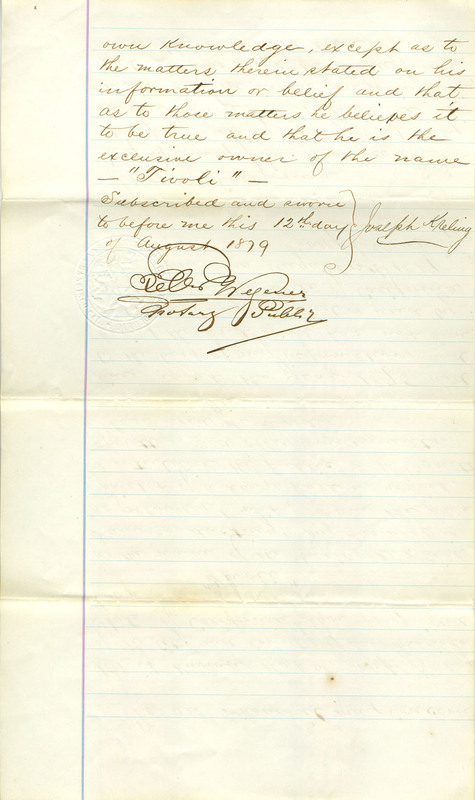 own knowledge, except as to
the matters therein stated on his
information or belief and that
as to those matters he believes it
to be true and that he is the
exclusive owner of the name
— "Tivoli" —
Subscribed and sworn
to before me this 12th day
of August 1879
Joseph Kreling
Wegener
Notary Public